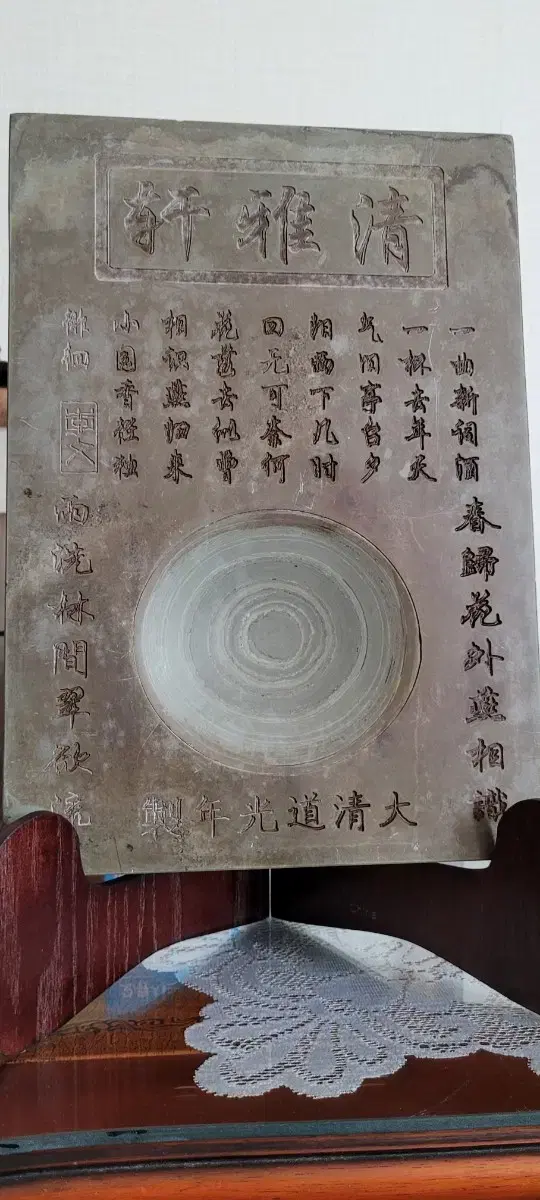 清雅軒
一曲新词酒
一杯去年天
气旧亭台夕
阳西下几时
回无可奈何
花落去似曾
相识燕归来
小园香径独
徘徊
春歸花外燕相識
雨洗林間翠欲流
大清道光年製